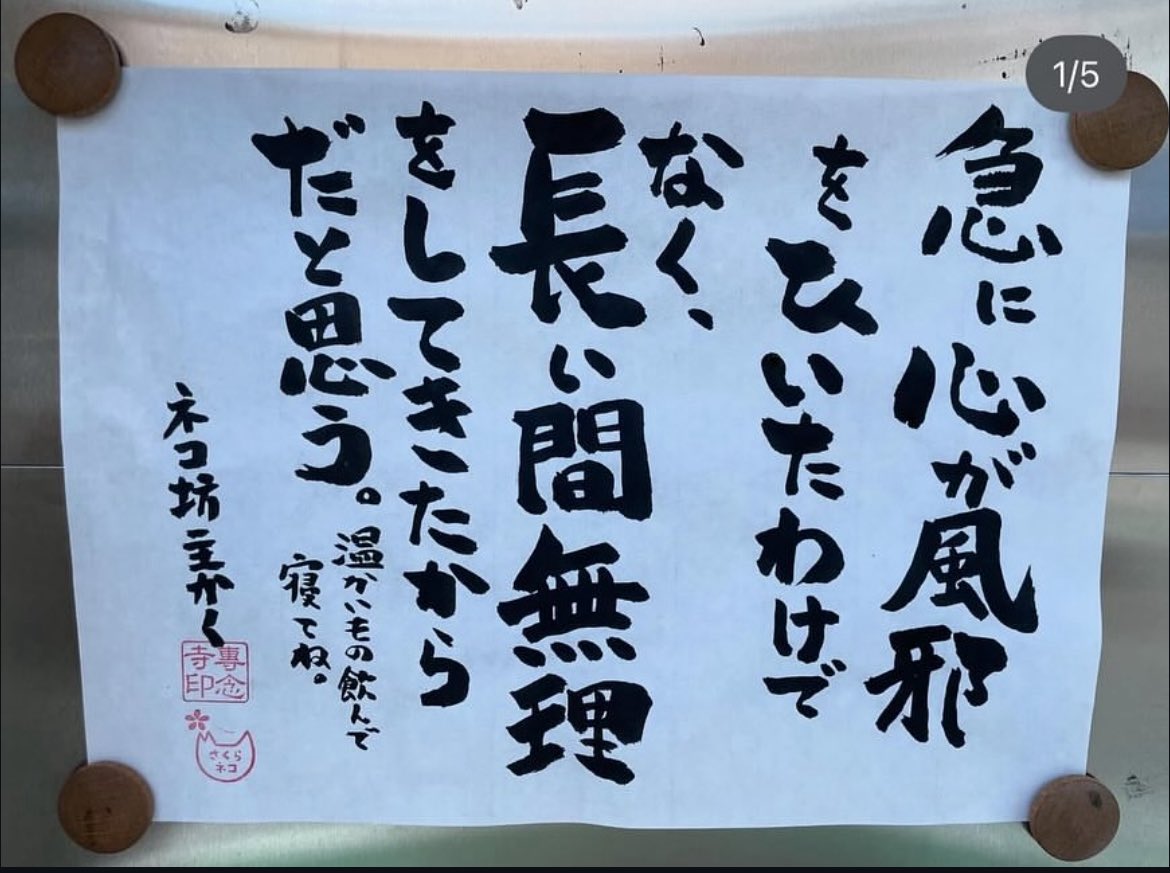 急に心が風邪
をひいたわけで
なく、
長い間無理
をしてきたから
だと思う。
温かいもの飲んで
寝てね。
ネコ坊主かく
專念
寺印
さくら
ネコ
1/5